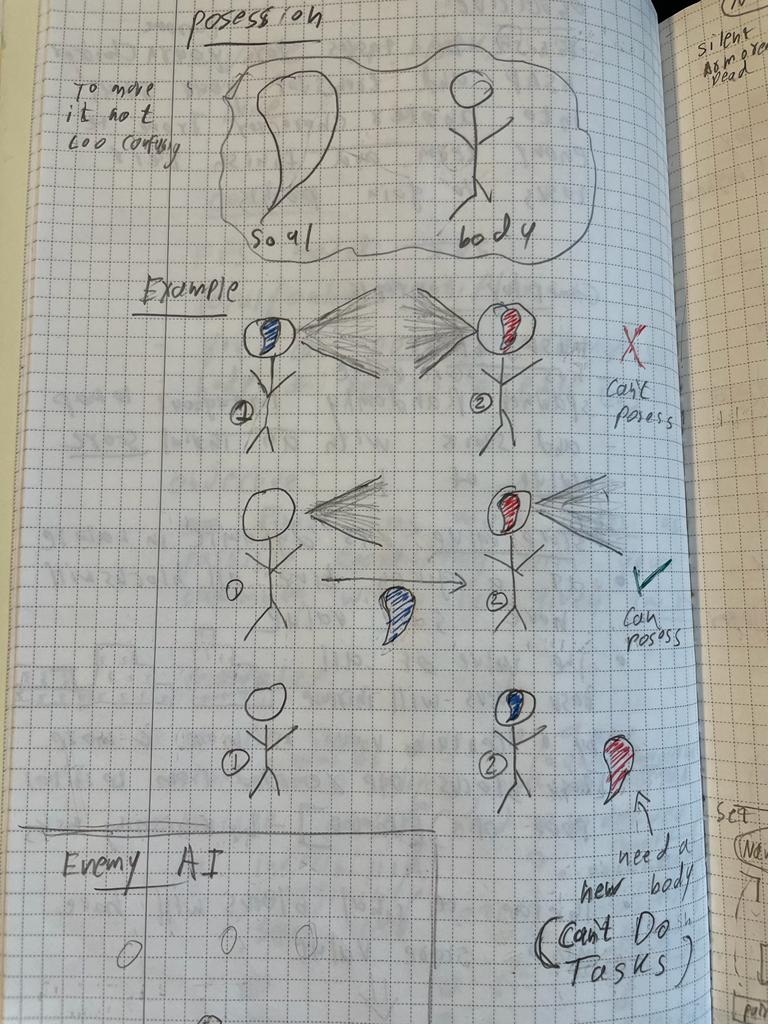 posession
To make
it not
too confusing
soul
body
Example
1
2
X
Can't
posess
1
2
✓
Can
posess
1
2
need a
new body
(Can't Do
Tasks)
Enemy AI
Silent
Armored
Dead
Set